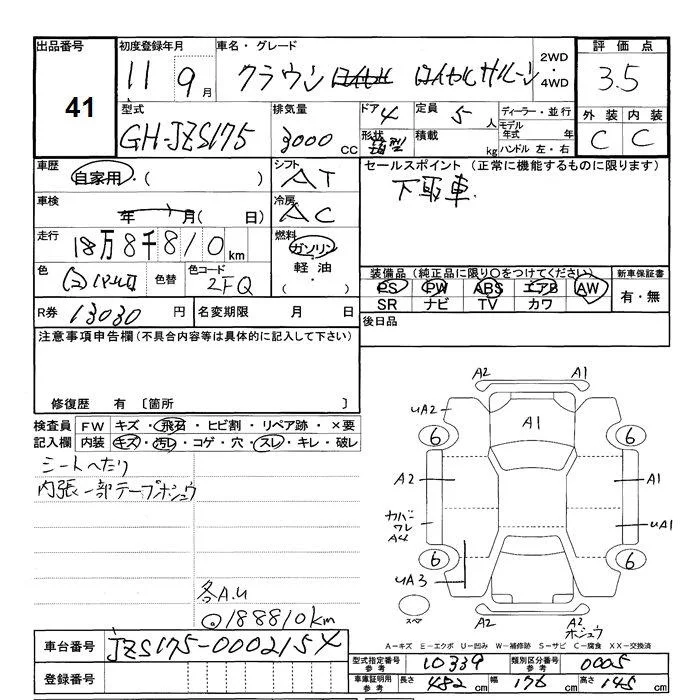 出品番号
41
初度登録年月
11 9月
車名・グレード
クラウン ロイヤルサルーン
2WD
・
4WD
評価点
3.5
外装 内装
C C
型式
GH-JZS175
排気量
3000 CC
ドア 4
形状 箱型
定員 5 人
積載 kg
ディーラー・並行
モデル年式 年
ハンドル 左・右
車歴
自家用・( )
シフト
AT
セールスポイント (正常に機能するものに限ります)
下取車.
車検
年 月( 日)
冷房
AC
走行
18万8千810km
燃料
ガソリン
・
軽油
・
( )
色
色替
色コード
2FQ
装備品 (純正品に限り○をつけてください)
PS PW ABS エアB AW
SR ナビ TV カワ
新車保証書
有・無
R券 13030 円
名変期限 月 日
後日品
注意事項申告欄 (不具合内容等は具体的に記入して下さい)
修復歴 有 〔箇所 〕
検査員記入欄
FW キズ・飛石・ヒビ割・リペア跡・×要
内装 キズ・汚レ・コゲ・穴・スレ・キレ・破レ
シートへたり
内張一部テープホシュウ
各A.U
◎188810km
A2 A1
UA2
A1
6 6
A2 A1
カバーワレ
A4
UA1
6 6
UA3
スペア
A2 A2
ホシュウ
A－キズ E－エクボ U－凹み W－補修跡 S－サビ C－腐食 XX－交換済
車台番号 JZS175-0002154
登録番号
型式指定番号参考 10339
類別区分番号参考 0005
車庫証明用参考 長さ 482 cm 幅 176 cm 高さ 145 cm